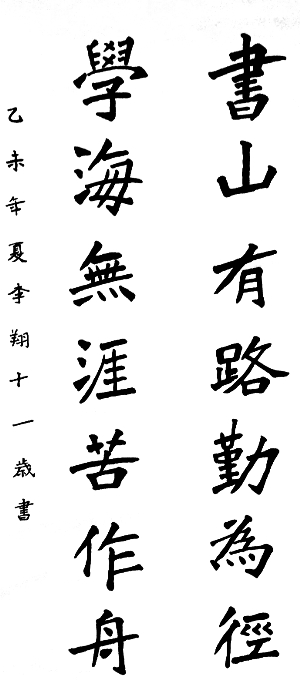 書山有路勤為徑
學海無涯苦作舟
乙未年夏李翔十一歲書